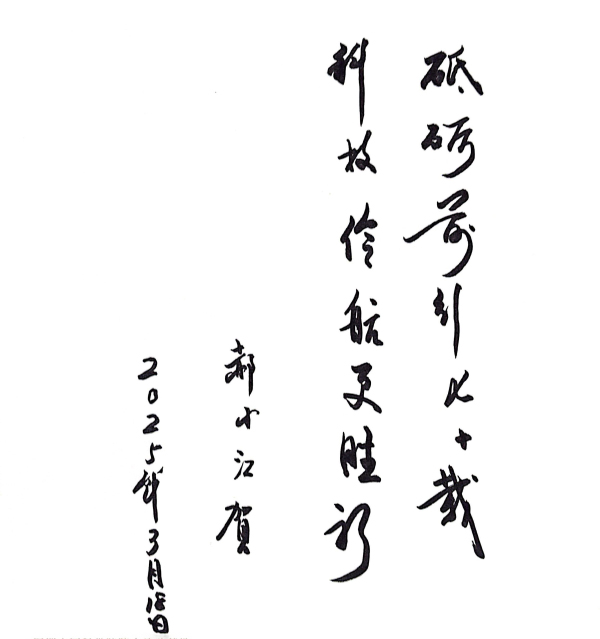 砥砺前行十载
科技伶航更胜
郝小江贺
2025年3月18日